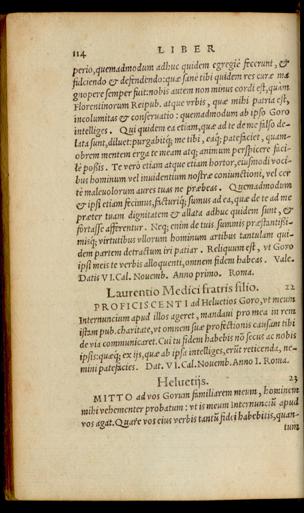 114 LIBER
perio,quemadmodum adhuc quidem egregiè fecerunt, &
fulciendo & defendendo:quæ sanè tibi quidem res curæ ma
gnopere semper fuit:nobis autem non minus cordi est,quàm
Florentinorum Reipub. atque vrbis, quæ mihi patria est,
incolumitas & conseruatio: quemadmodum ab ipso Goro
intelliges. Qui quidem ea etiam,quæ ad te de me falso de-
lata sunt,diluet:purgabitq; me tibi, eaq; patefaciet, quam-
obrem mentem erga te meam atq; animum perspicere faci-
lè possis. Te verò etiam atque etiam hortor,eiusmodi voci-
bus hominum vel inuidentium nostræ coniunctioni, vel cer
tè maleuolorum aures tuas ne præbeas. Quemadmodum
& ipsi etiam fecimus,facturiq; sumus ad ea, quæ de te ad me
præter tuam dignitatem & allata adhuc quidem sunt, &
fortasse afferentur. Neq; enim de tuis summis præstantissi-
misq; virtutibus vllorum hominum artibus tantulum qui-
dem partem detractum iri patiar. Reliquum est, vt Goro
ipsi meis te verbis alloquenti,omnem fidem habeas. Vale.
Datis VI.Cal. Nouemb. Anno primo. Roma.
Laurentio Medici fratris filio. 22
PROFICISCENTI ad Heluetios Goro,vt meum
Internuncium apud illos ageret, mandaui pro mea in rem
istam pub.charitate,vt omnem suæ profectionis causam tibi
de via communicaret.Cui tu fidem habebis nõ secus ac nobis
ipsis:quæq; ex ijs,quæ ab ipsa intelliges,erũt reticenda, ne-
mini patefacies. Dat. VI.Cal.Nouemb.Anno I. Roma.
Heluetijs. 23
MITTO ad vos Gorum familiarem meum, hominem
mihi vehementer probatum: vt is meum Internunciũ apud
vos agat.Quare vos eius verbis tantũ fidei habebitis,quan-
tum